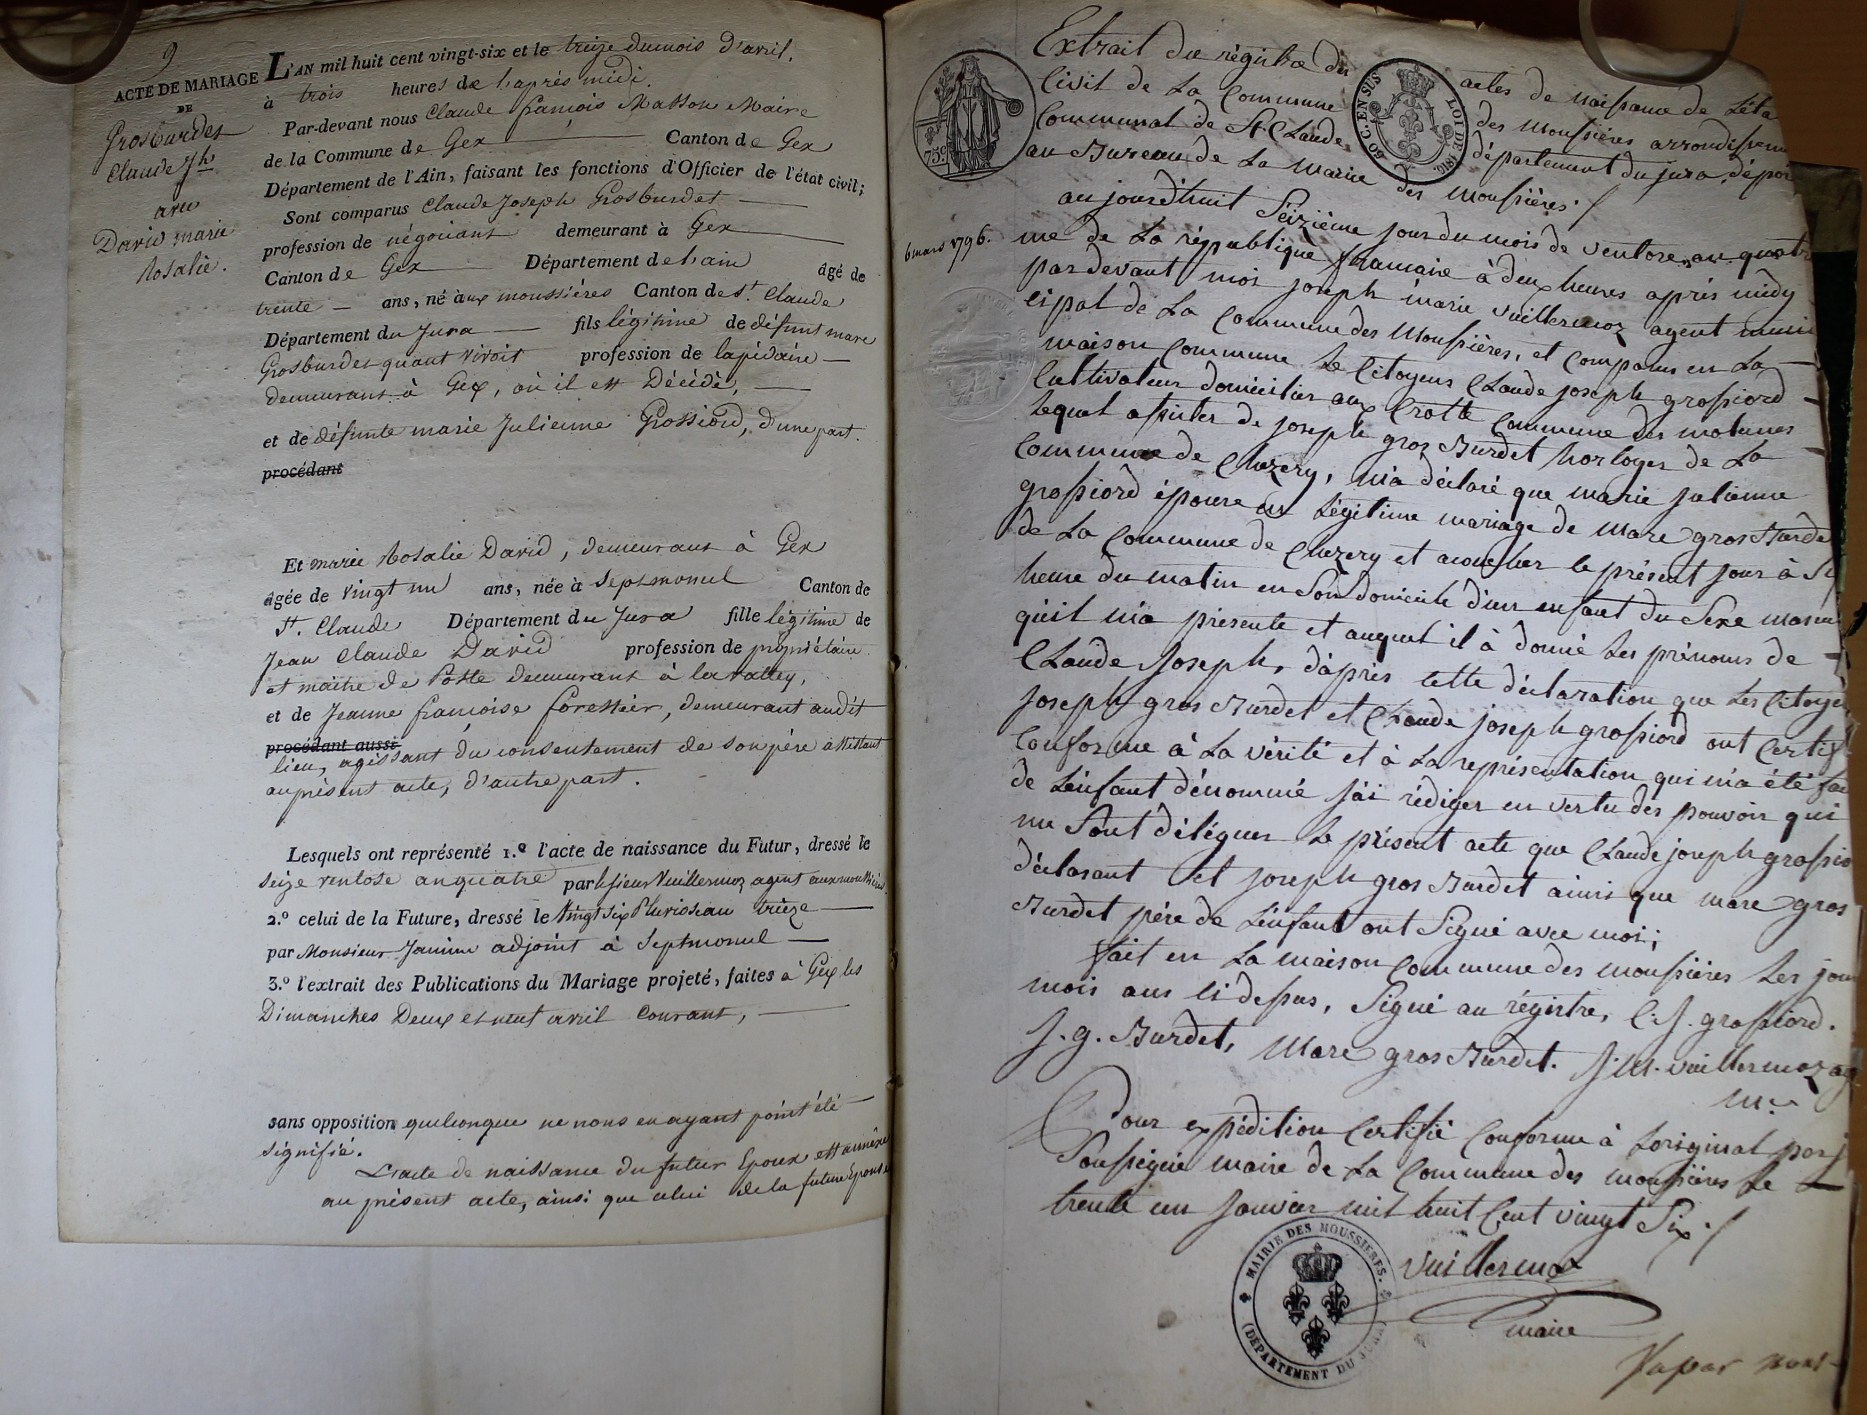 9
ACTE DE MARIAGE
DE
Grosburdet
Claude Jh
avec
David marie
Rosalie.
L'AN mil huit cent vingt-six et le treize du mois d'avril,
à trois heures de l'après midi.
Par-devant nous Claude françois Masson Maire
de la Commune de Gex Canton de Gex
Département de l'Ain, faisant les fonctions d'Officier de l'état civil;
Sont comparus Claude Joseph Grosburdet
profession de négociant demeurant à Gex
Canton de Gex Département de l'ain âgé de
trente ans, né aux moussières Canton de St. Claude
Département du Jura fils légitime de défunt marc
Grosburdet quant vivoit profession de lapidaire
demeurant à Gex, où il est Décédé,
et de défunte marie Julienne Grossiord, d'une part.
procédant
Et marie Rosalie David, demeurant à Gex
âgée de vingt un ans, née à Septmoncel Canton de
St. Claude Département du Jura fille légitime de
Jean Claude David profession de propriétaire
et maitre de Poste demeurant à la vattey,
et de Jeanne françoise forestier, demeurant audit
procédant aussi
lieu, agissant du consentement de son père assistant
au présent acte, d'autre part.
Lesquels ont représenté 1.º l'acte de naissance du Futur, dressé le
seize ventose an quatre par le sieur Vuillermoz agent aux moussières
2.º celui de la Future, dressé le vingt six Pluviose an treize
par Monsieur Janin adjoint à Septmoncel
3.º l'extrait des Publications du Mariage projeté, faites à Gex les
Dimanches Deux et neuf avril courant,
sans opposition quelconque ne nous en ayant point été
signifié.
L'acte de naissance du futur Epoux est annexé
au présent acte, ainsi que celui de la future Epouse
Extrait du régistre des actes de naissance de L'éta
Civil de La Commune des Moussières arrondissem
Communal de St Claude département du jura, dépos
au Bureau de La mairie des moussières ./
75 c
50 C. EN SUS LOI DE 1816
6 mars 1796.
aujourd'huit Seizième jour du mois de ventose, an quatr
me de La république francaise à deux heures après midy
par devant moi joseph marie vuillermoz agent muni
cipal de La Commune des Moussières, et comparus en La
maison Commune Le Citoyens Claude joseph grossiord
Cultivateur domicilier aux Crotte Commune des molunes
Lequel assister de joseph gros Burdet horloger de La
Commune de Chezery, m'a déclaré que marie julienne
grossiord épouse en Légitime mariage de marc gros Burde
de La Commune de Chezery et acoucher le présent jour à Si
heure du matin en Son domicile d'un enfant du Sexe mascu
qu'il m'a présente et auquel il à donné Les prénoms de
Claude Joseph, d'après cette déclaration que Les Citoye
joseph gros Burdet et Claude joseph grossiord ont Certif
Conforme à La vérité et à La représentation qui m'a été fai
de L'enfant dénommé j'ai rédiger en vertu des pouvoir qui
me Sont déléguer Le présent acte que Claude joseph grossio
déclarant et joseph gros Burdet ainsi que marc gros
Burdet père de L'enfant ont Signé avec moi;
fait en La maison Commune des moussières Les jour
mois ans ci dessus, Signé au régistre, C. J. grossiord.
J. g. Burdet, Marc gros Burdet. J: M. vuillermoz ag
m.
Pour expédition Certifié Conforme à Loriginal par j
Soussigné maire de La Commune des moussières Le
trente un janvier mil huit Cent vingt Six ./
Vuillermoz
maire
MAIRIE DES MOUSSIERES.
(DÉPARTEMENT DU JURA)